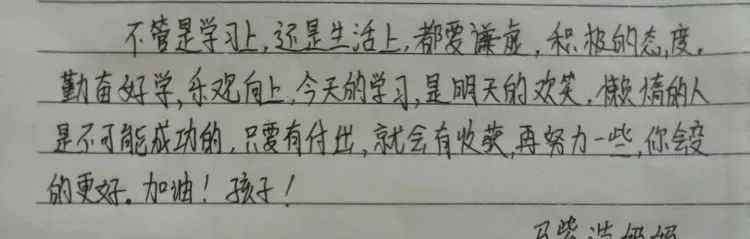 不管是学习上,还是生活上,都要谦虚,积极的态度。
勤奋好学,乐观向上,今天的学习,是明天的欢笑,懒惰的人
是不可能成功的,只要有付出,就会有收获,再努力一些,你会变
的更好。加油!孩子!
妈妈